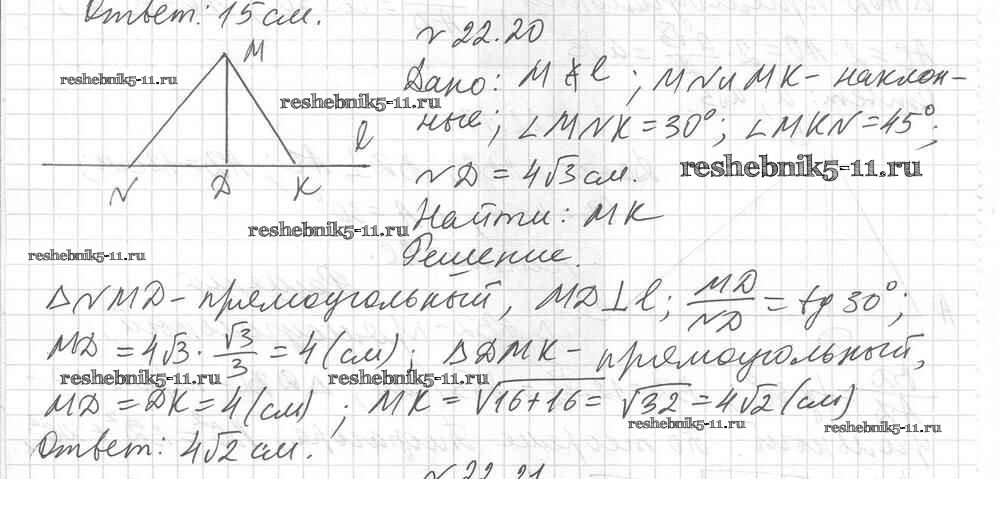 Ответ: 15 см.
№ 22.20
M
reshebnik5-11.ru
Дано: M ∉ l ; MN и MK - наклон-
reshebnik5-11.ru
ные; ∠MNK = 30°; ∠MKN = 45°;
l
reshebnik5-11.ru
ND = 4√3 см.
N D K
Найти: MK
reshebnik5-11.ru
Решение.
reshebnik5-11.ru
△NMD - прямоугольный, MD ⊥ l; MD/ND = tg 30°;
MD = 4√3 · √3/3 = 4 (см); △DMK - прямоугольный,
reshebnik5-11.ru reshebnik5-11.ru
MD = DK = 4 (см) ; MK = √16+16 = √32 = 4√2 (см)
reshebnik5-11.ru reshebnik5-11.ru
Ответ: 4√2 см.
№ 22.21